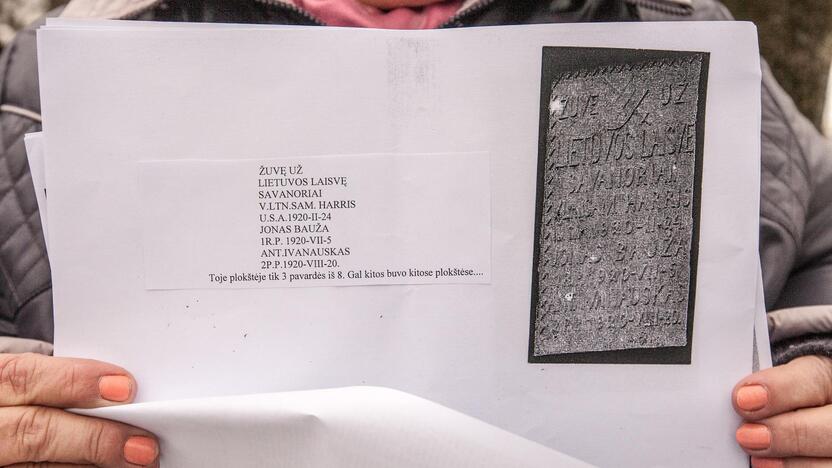 ŽUVĘ UŽ
LIETUVOS LAISVĘ
SAVANORIAI
V.LTN.SAM. HARRIS
U.S.A.1920-II-24
JONAS BAUŽA
1R.P. 1920-VII-5
ANT.IVANAUSKAS
2P.P.1920-VIII-20.
Toje plokštėje tik 3 pavardės iš 8. Gal kitos buvo kitose plokštėse....
ŽUVĘ UŽ
LIETUVOS LAISVĘ
SAVANORIAI
HARRIS
BAUŽA